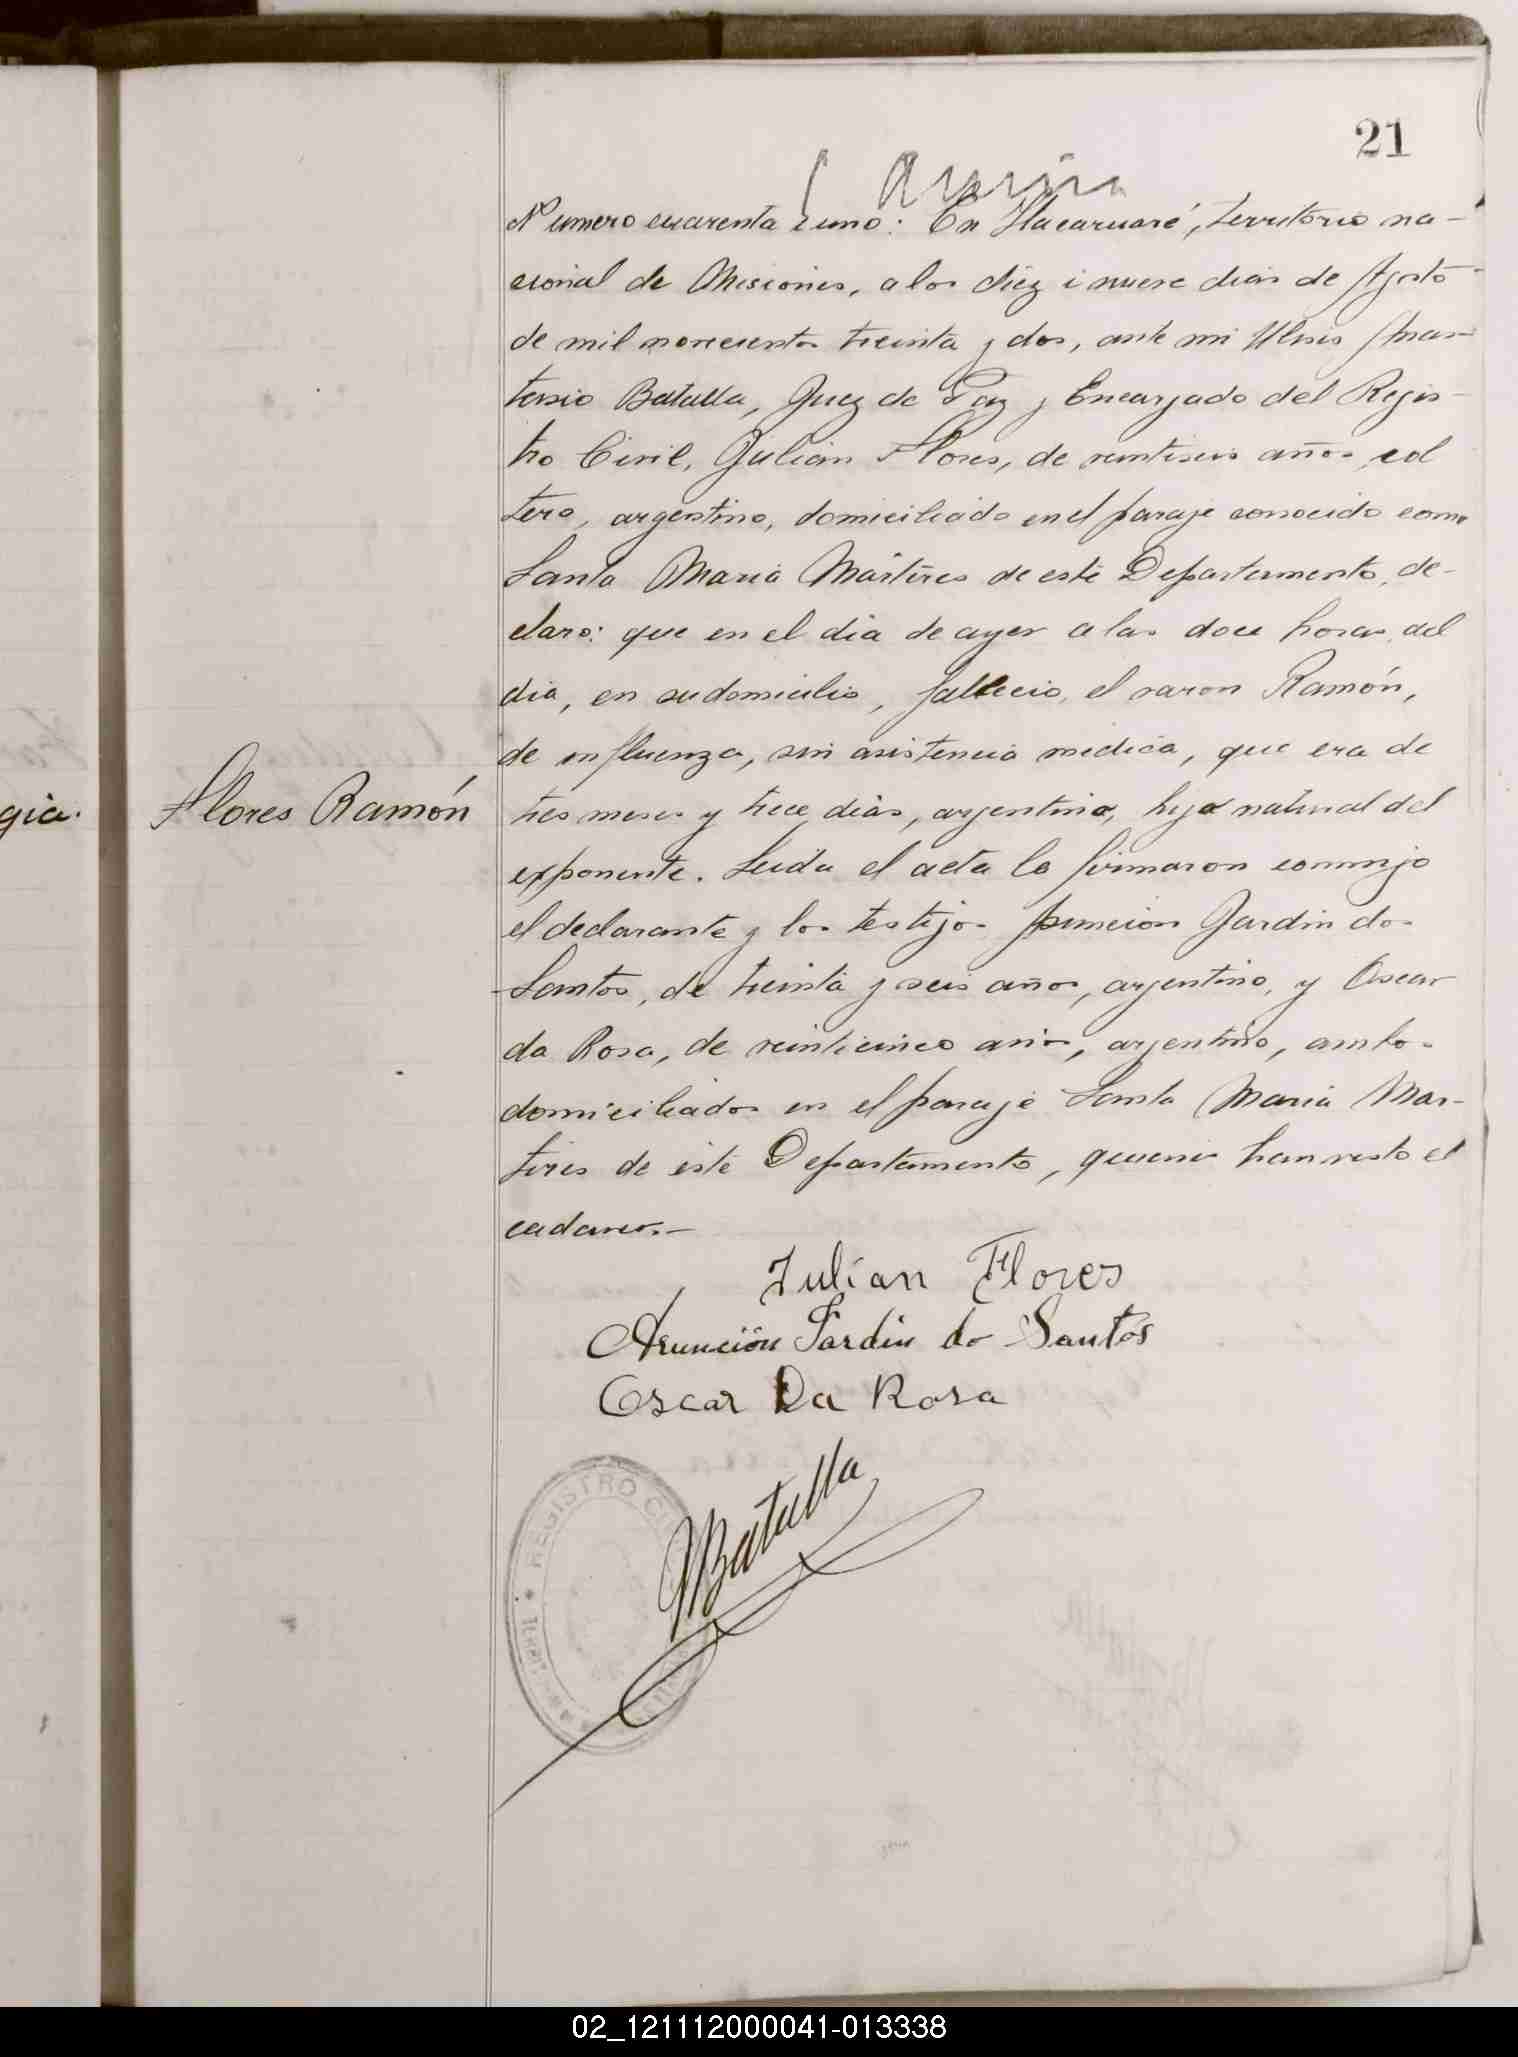 21
Numero cuarenta i uno: En Itacaruaré, territorio na-
cional de Misiones, a los diez i nueve dias de Agosto
de mil novecientos treinta y dos, ante mi Ulises
Batalla, Juez de Paz y Encargado del Regis-
tro Civil, Julián Flores, de veintiseis años, sol
tero, argentino, domiciliado en el paraje conocido como
Santa Maria Martires de este Departamento, de-
claro: que en el dia de ayer a las doce horas del
dia, en su domicilio, fallecio, el varon Ramón,
de influenza, sin asistencia medica, que era de
Flores Ramón
tres meses y trece dias, argentino, hijo natural del
exponente. Leida el acta la firmaron conmigo
el declarante y los testigos Asuncion Jardin do
Santos, de treinta y seis años, argentino, y Oscar
da Rosa, de veinticinco años, argentino, ambos
domiciliados en el paraje Santa Maria Mar-
tires de este Departamento, quienes han visto el
cadaver.-
Julian Flores
Asunción Jardin do Santos
Oscar Da Rosa
Batalla
REGISTRO
02_121112000041-013338